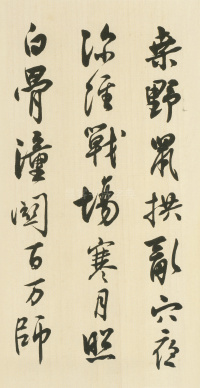 桑野鼠拱亂穴夜
深經戰場寒月照
白骨潼關百万師